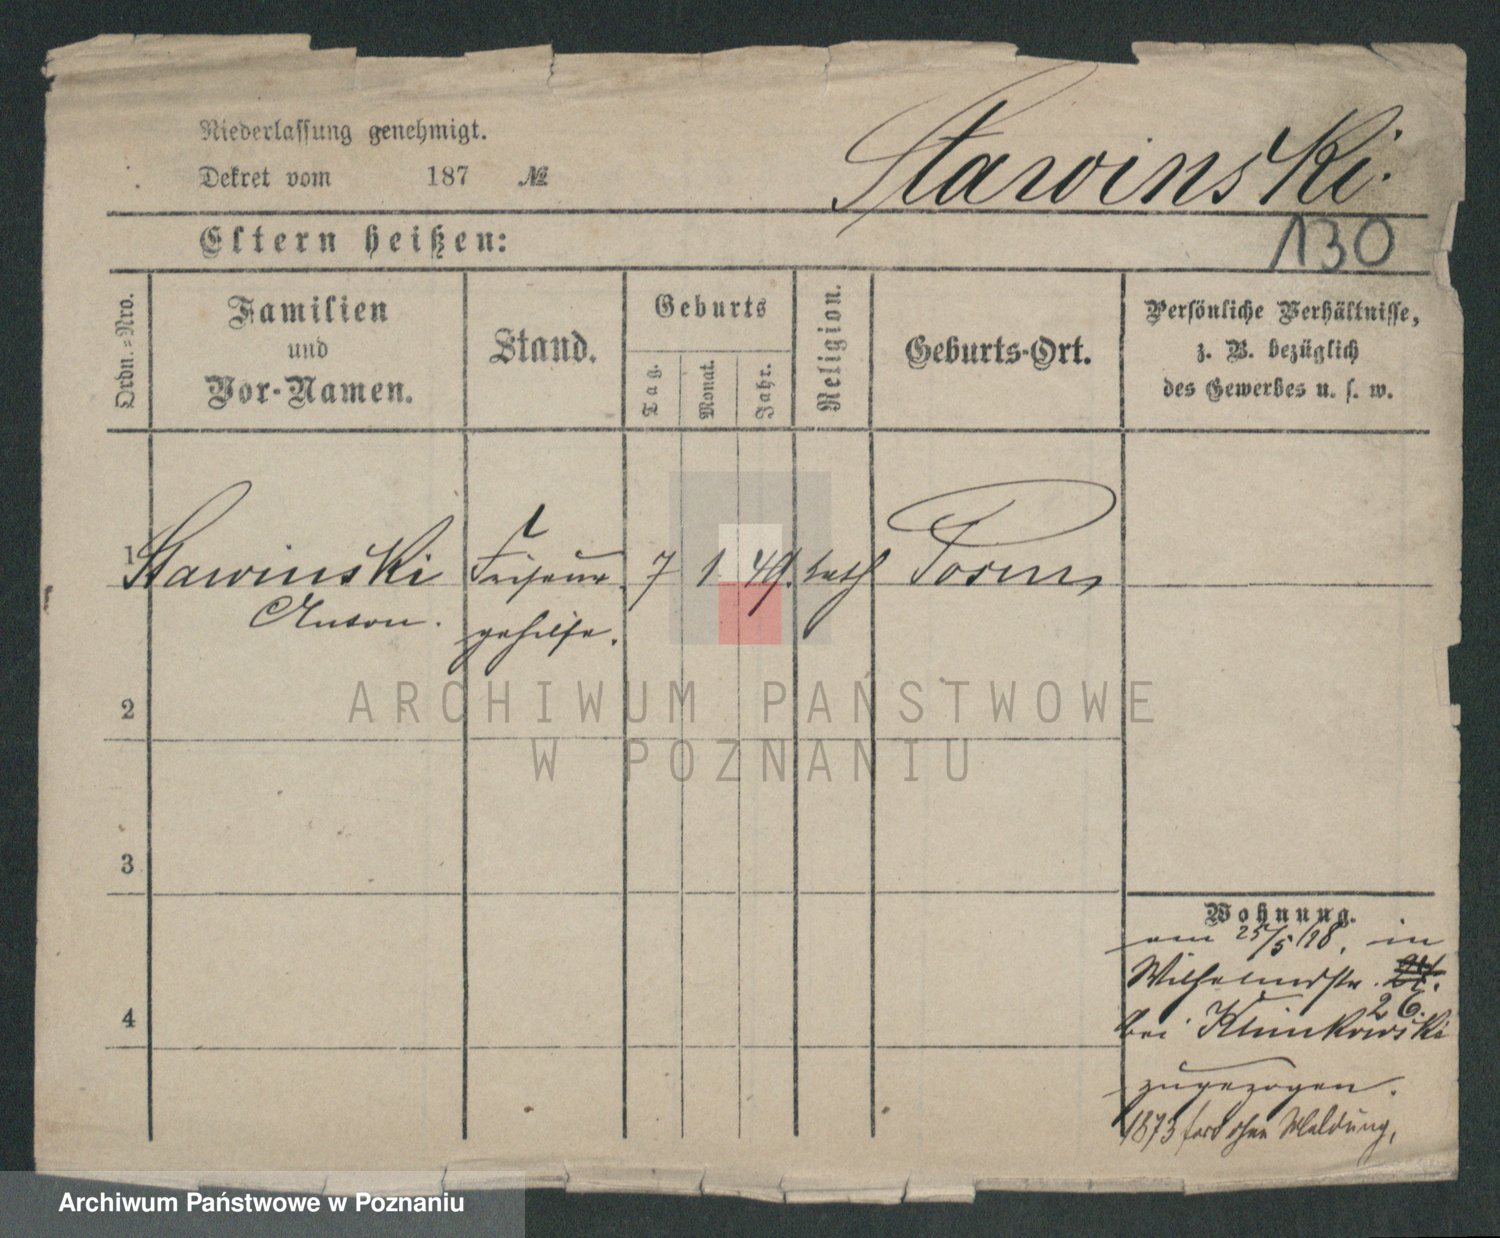 Niederlassung genehmigt.
Dekret vom 187 №
Stawinski.
130
Eltern heißen:
Ordn.=Nro.
Familien
und
Vor-Namen.
Stand.
Geburts
Tag.
Monat.
Jahr.
Religion.
Geburts-Ort.
Persönliche Verhältnisse,
z. B. bezüglich
des Gewerbes u. s. w.
1 Stawinski Friseur 7 1 49. kath Posen
Anton. gehilfe.
2
3
4
Wohnung.
am 25/5 in
Wilhelmstr.
26.
bei Klinkowski
zugezogen.
1873 fort ohne Meldung,
ARCHIWUM PAŃSTWOWE
W POZNANIU
Archiwum Państwowe w Poznaniu